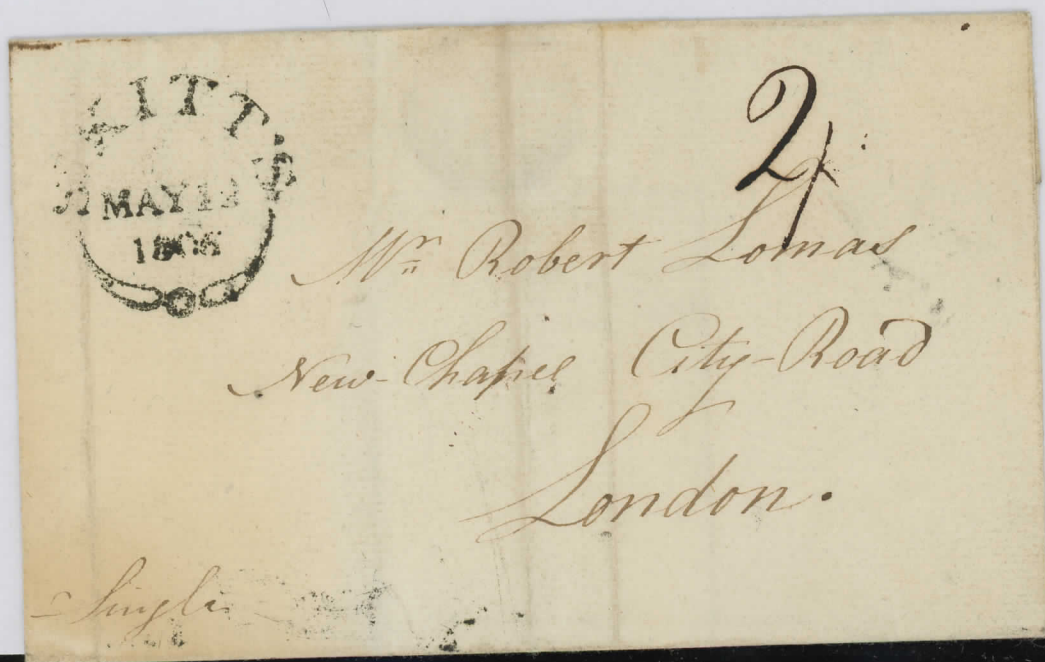 St KITT'S
MAY 12
1808
2/
Mr. Robert Lomas
New-Chapel City-Road
London.
Single